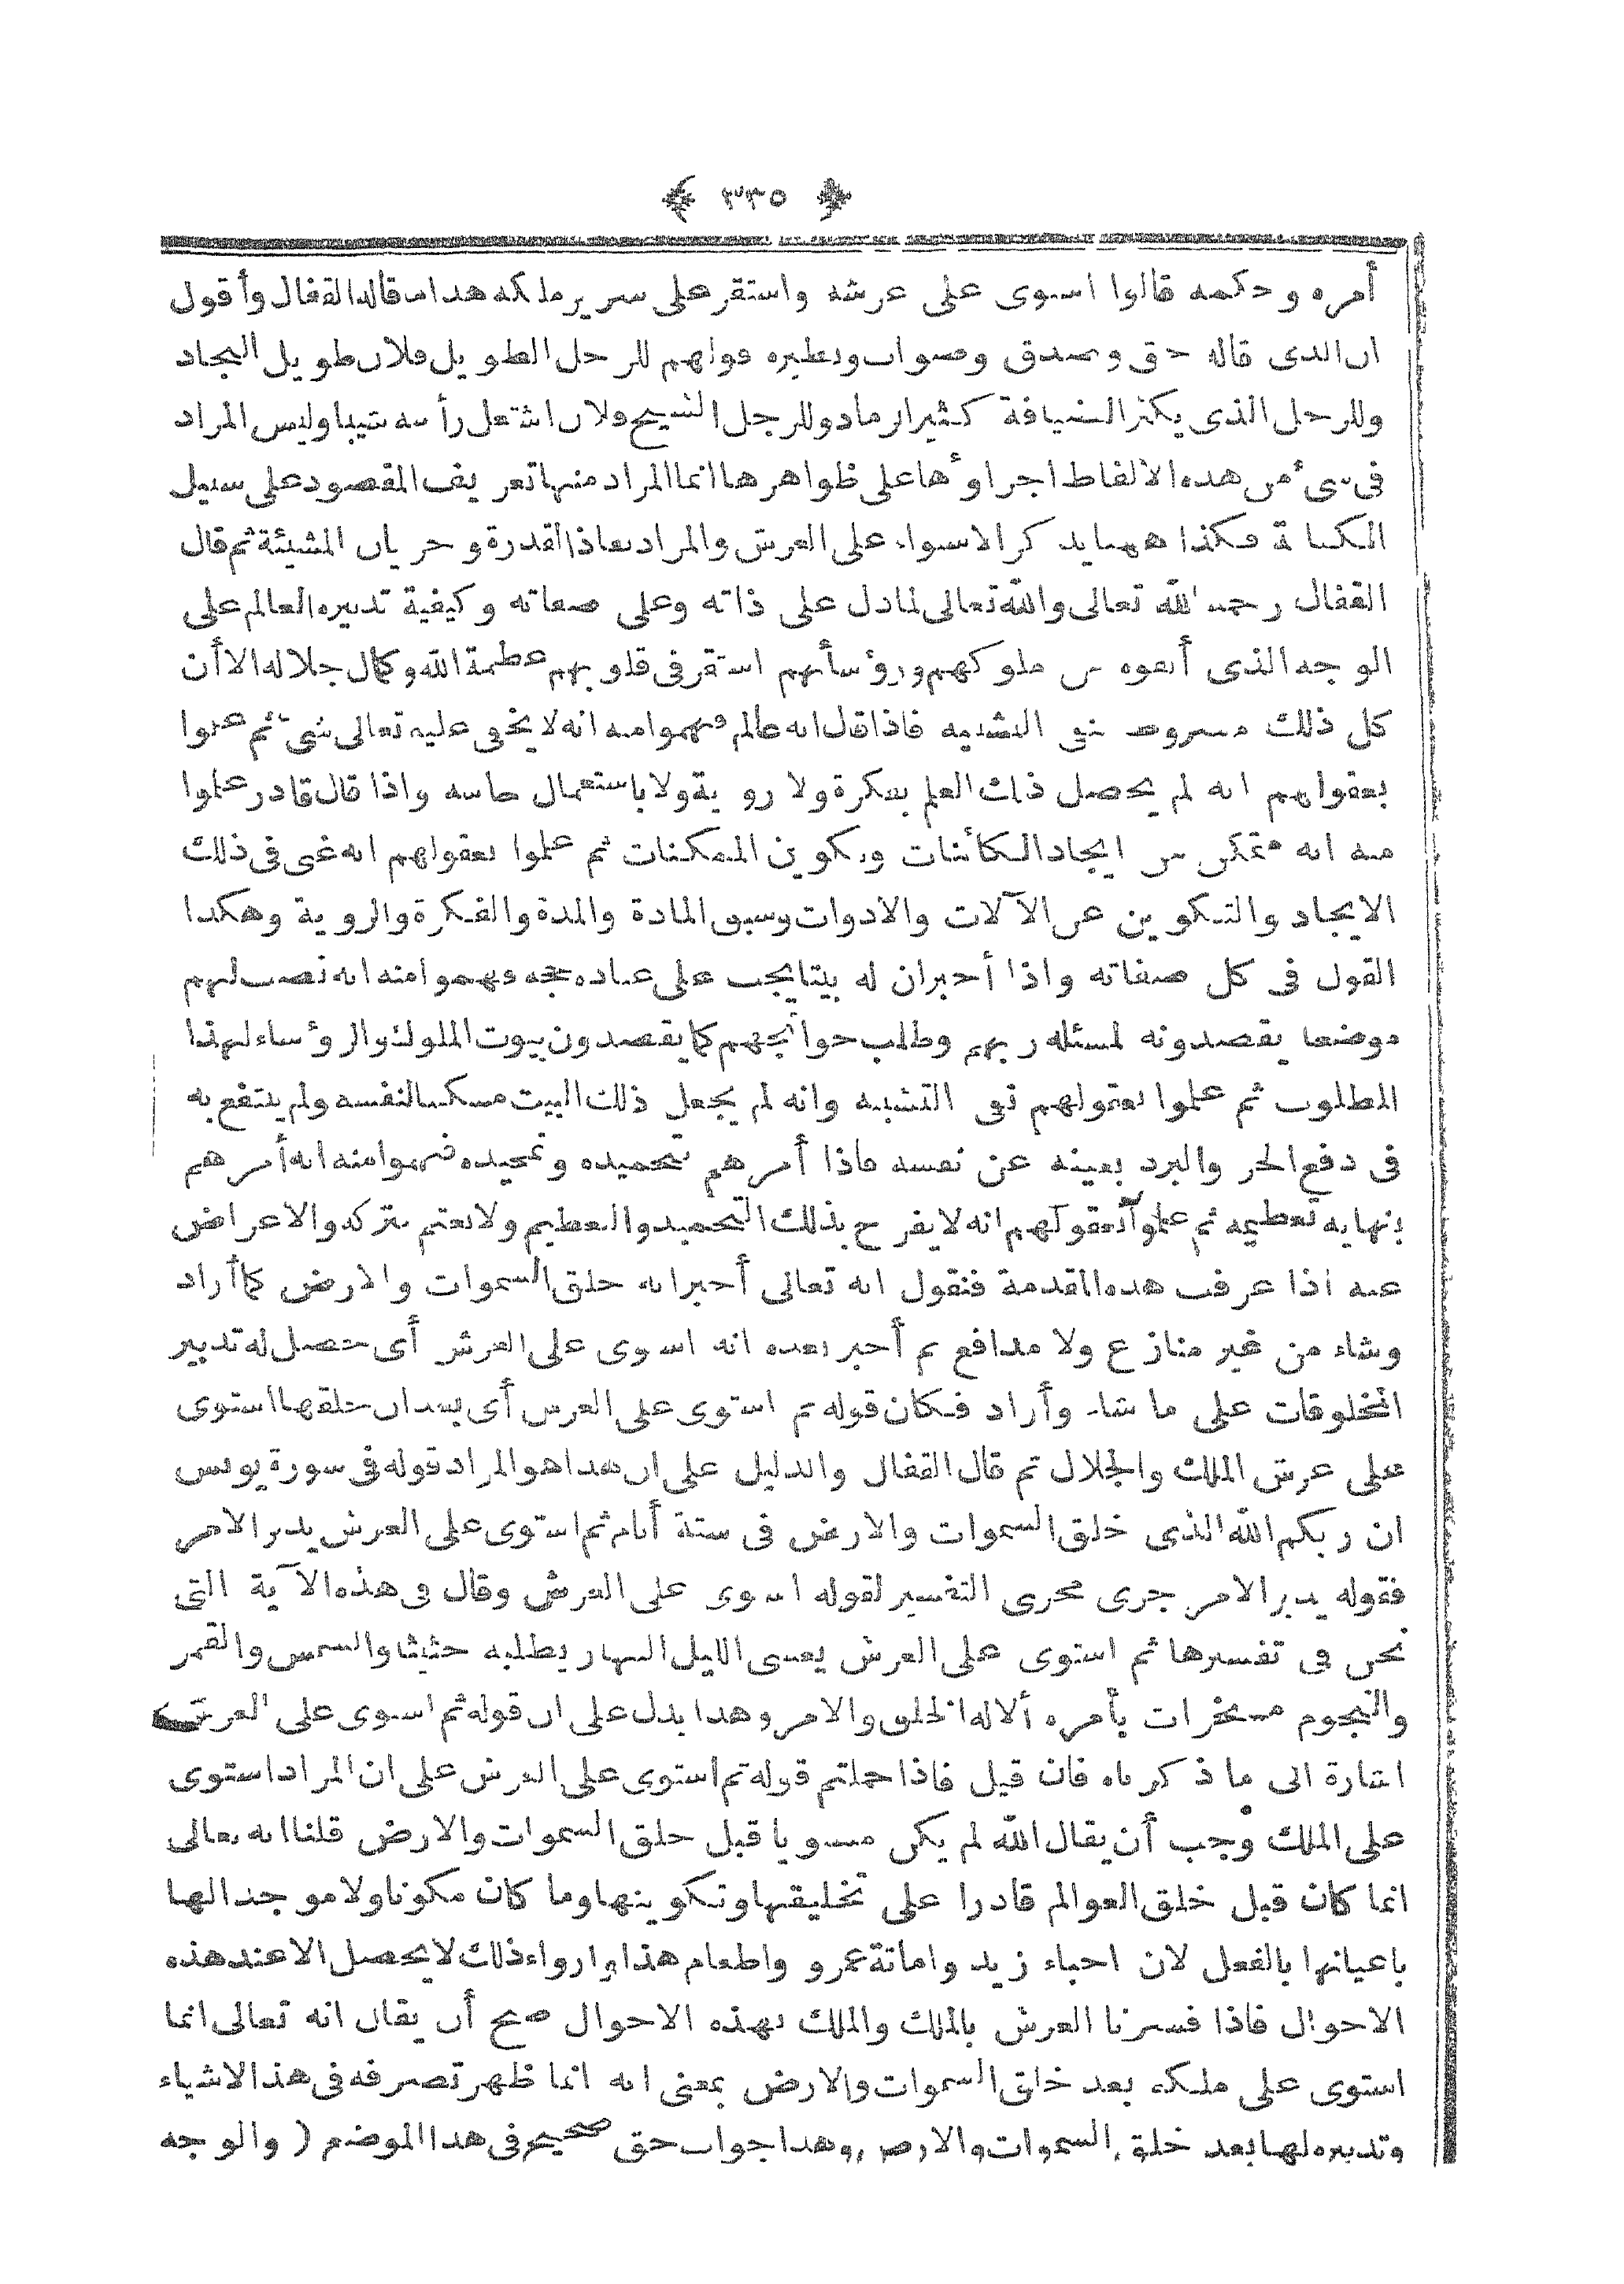 ﴿ ٣٣٥ ﴾
أمره وحكمه قالوا استوى على عرشه واستقر على سرير ملكه هذا ما قاله القفال وأقول
ان الذى قاله حق وصدق وصواب ونظيره قولهم للرجل الطويل فلان طويل النجاد
وللرجل الذى يكثر الضيافة كثير الرماد وللرجل الشيخ فلان اشتعل رأسه شيبا وليس المراد
فى شىء من هذه الالفاظ اجراؤها على ظواهرها انما المراد منها تعريف المقصود على سبيل
الكناية فكذا ههنا يذكر الاستواء على العرش والمراد نفاذ القدرة وجريان المشيئة ثم قال
القفال رحمه الله تعالى والله تعالى لما دل على ذاته وعلى صفاته وكيفية تدبيره العالم على
الوجه الذى ألفوه من ملوكهم ورؤسائهم استقر فى قلوبهم عظمة الله وكمال جلاله الا أن
كل ذلك مشروط بنفى التشبيه فاذا قال انه عالم فهموا منه انه لا يخفى عليه تعالى شىء ثم علموا
بعقولهم انه لم يحصل ذلك العلم بفكرة ولا روية ولا باستعمال حاسه واذا قال قادر علموا
منه انه متمكن من ايجاد الكائنات وتكوين الممكنات ثم علموا بعقولهم انه غنى فى ذلك
الايجاد والتكوين عن الآلات والادوات وسبق المادة والمدة والفكرة والروية وهكذا
القول فى كل صفاته واذا أخبر ان له بيتا يجب على عباده حجه فهموا منه انه نصب لهم
موضعا يقصدونه لمسئله ربهم وطلب حوائجهم كما يقصدون بيوت الملوك والرؤساء لهذا
المطلوب ثم علموا بعقولهم نفى التشبيه وانه لم يجعل ذلك البيت مسكنا لنفسه ولم ينتفع به
فى دفع الحر والبرد بعينه عن نفسه فاذا أمرهم بتحميده وتمجيده فهموا منه انه أمرهم
بنهايه تعظيمه ثم علموا بعقولهم انه لا يفرح بذلك التحميد والتعظيم ولا يغتم بتركه والاعراض
عنه اذا عرفت هذه المقدمة فنقول انه تعالى أخبر انه خلق السموات والارض كما أراد
وشاء من غير منازع ولا مدافع ثم أخبر بعده انه استوى على العرش أى حصل له تدبير
المخلوقات على ما شاء وأراد فكان قوله ثم استوى على العرش أى بعد ان خلقها استوى
على عرش الملك والجلال ثم قال القفال والدليل على ان هذا هو المراد قوله فى سورة يونس
ان ربكم الله الذى خلق السموات والارض فى ستة أيام ثم استوى على العرش يدبر الامر
فقوله يدبر الامر جرى مجرى التفسير لقوله استوى على العرش وقال فى هذه الآية التى
نحن فى تفسيرها ثم استوى على العرش يغشى الليل النهار يطلبه حثيثا والشمس والقمر
والنجوم مسخرات بأمره ألا له الخلق والامر وهذا يدل على ان قوله ثم استوى على العرش
اشارة الى ما ذكرناه فان قيل فاذا حملتم قوله ثم استوى على العرش على ان المراد استوى
على الملك وجب أن يقال الله لم يكن مستويا قبل خلق السموات والارض قلنا انه تعالى
انما كان قبل خلق العوالم قادرا على تخليقها وتكوينها وما كان مكونا ولا موجدا لها
باعيانها بالفعل لان احياء زيد واماتة عمرو واطعام هذا وارواء ذلك لا يحصل الا عند هذه
الاحوال فاذا فسرنا العرش بالملك والملك بهذه الاحوال صح أن يقال انه تعالى انما
استوى على ملكه بعد خلق السموات والارض بمعنى انه انما ظهر تصرفه فى هذ الاشياء
وتدبيره لها بعد خلق السموات والارض وهذا جواب حق صحيح فى هذا الموضع ( والوجه